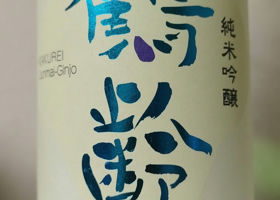 鶴齢
純米吟醸
KAKUREI
Junmai-Ginjo